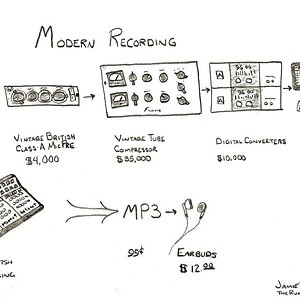 MODERN RECORDING
VINTAGE BRITISH
CLASS-A MIC PRE
$4,000
VINTAGE TUBE
COMPRESSOR
$35,000
DIGITAL CONVERTERS
$10,000
MP3
99¢
EARBUDS
$12.00